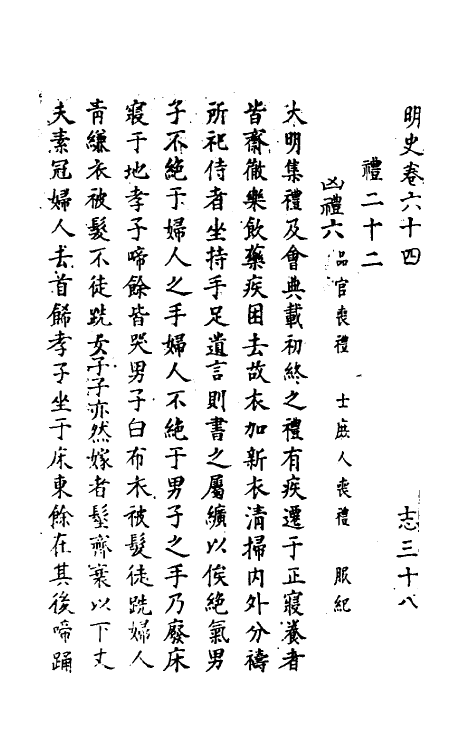 明史卷六十四　志三十八
禮二十二
凶禮六　品官喪禮　士庶人喪禮　服紀
大明集禮及會典載初終之禮有疾遷于正寢養者
皆齋徹樂飲藥疾困去故衣加新衣清掃內外分禱
所祀侍者坐持手足遺言則書之屬纊以俟絶氣男
子不絶于婦人之手婦人不絶于男子之手乃廢床
寢于地孝子啼餘皆哭男子白布衣被髮徒跣婦人
青縑衣被髮不徒跣女子子亦然嫁者髽齊衰以下丈
夫素冠婦人去首餙孝子坐于床東餘在其後啼踊